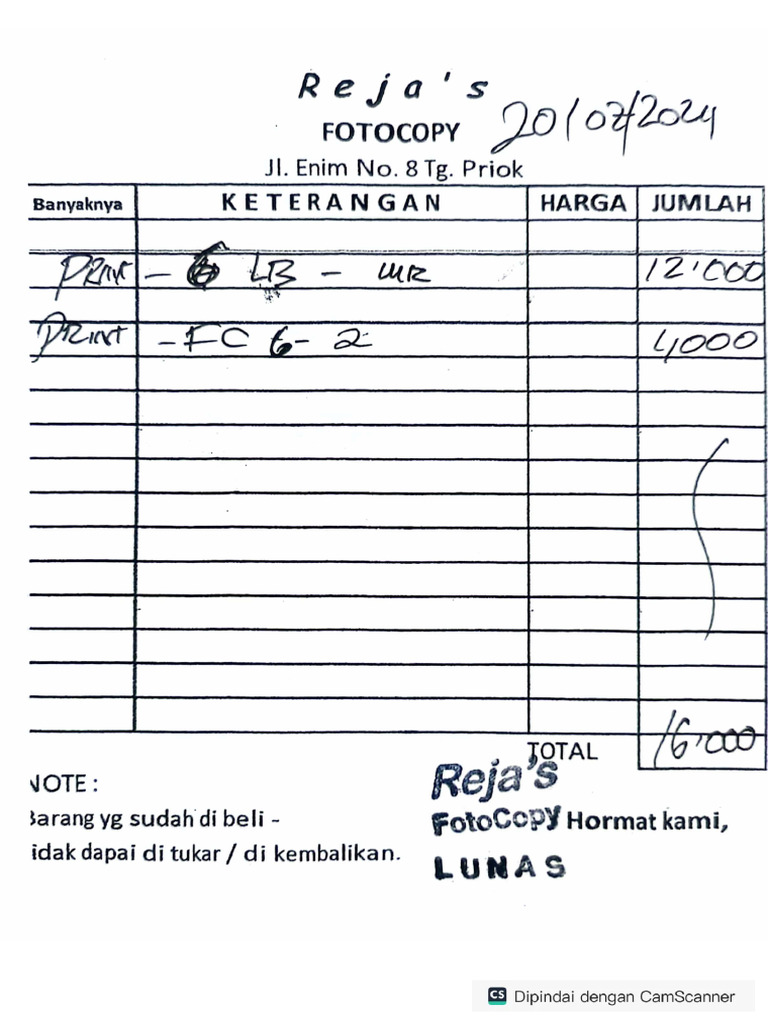 Reja's
FOTOCOPY
20/07/2024
Jl. Enim No. 8 Tg. Priok
Banyaknya KETERANGAN HARGA JUMLAH
PRINT - 6 LB - WR 12'000
PRINT - FC 6 - 2 4,000
16'000
TOTAL
NOTE :
Barang yg sudah di beli -
idak dapai di tukar / di kembalikan.
Reja's
FotoCopy Hormat kami,
LUNAS
CS Dipindai dengan CamScanner